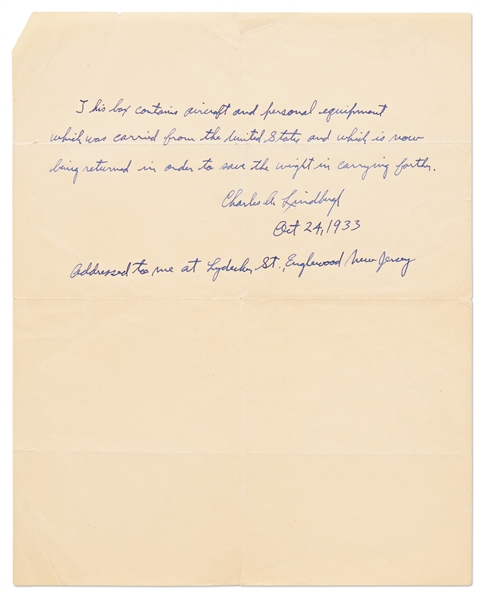 This box contains aircraft and personal equipment
which was carried from the United States and which is now
being returned in order to save the wight in carrying farther.
Charles A. Lindbergh
Oct 24, 1933
Addressed to me at Lydecker St., Englewood New Jersey